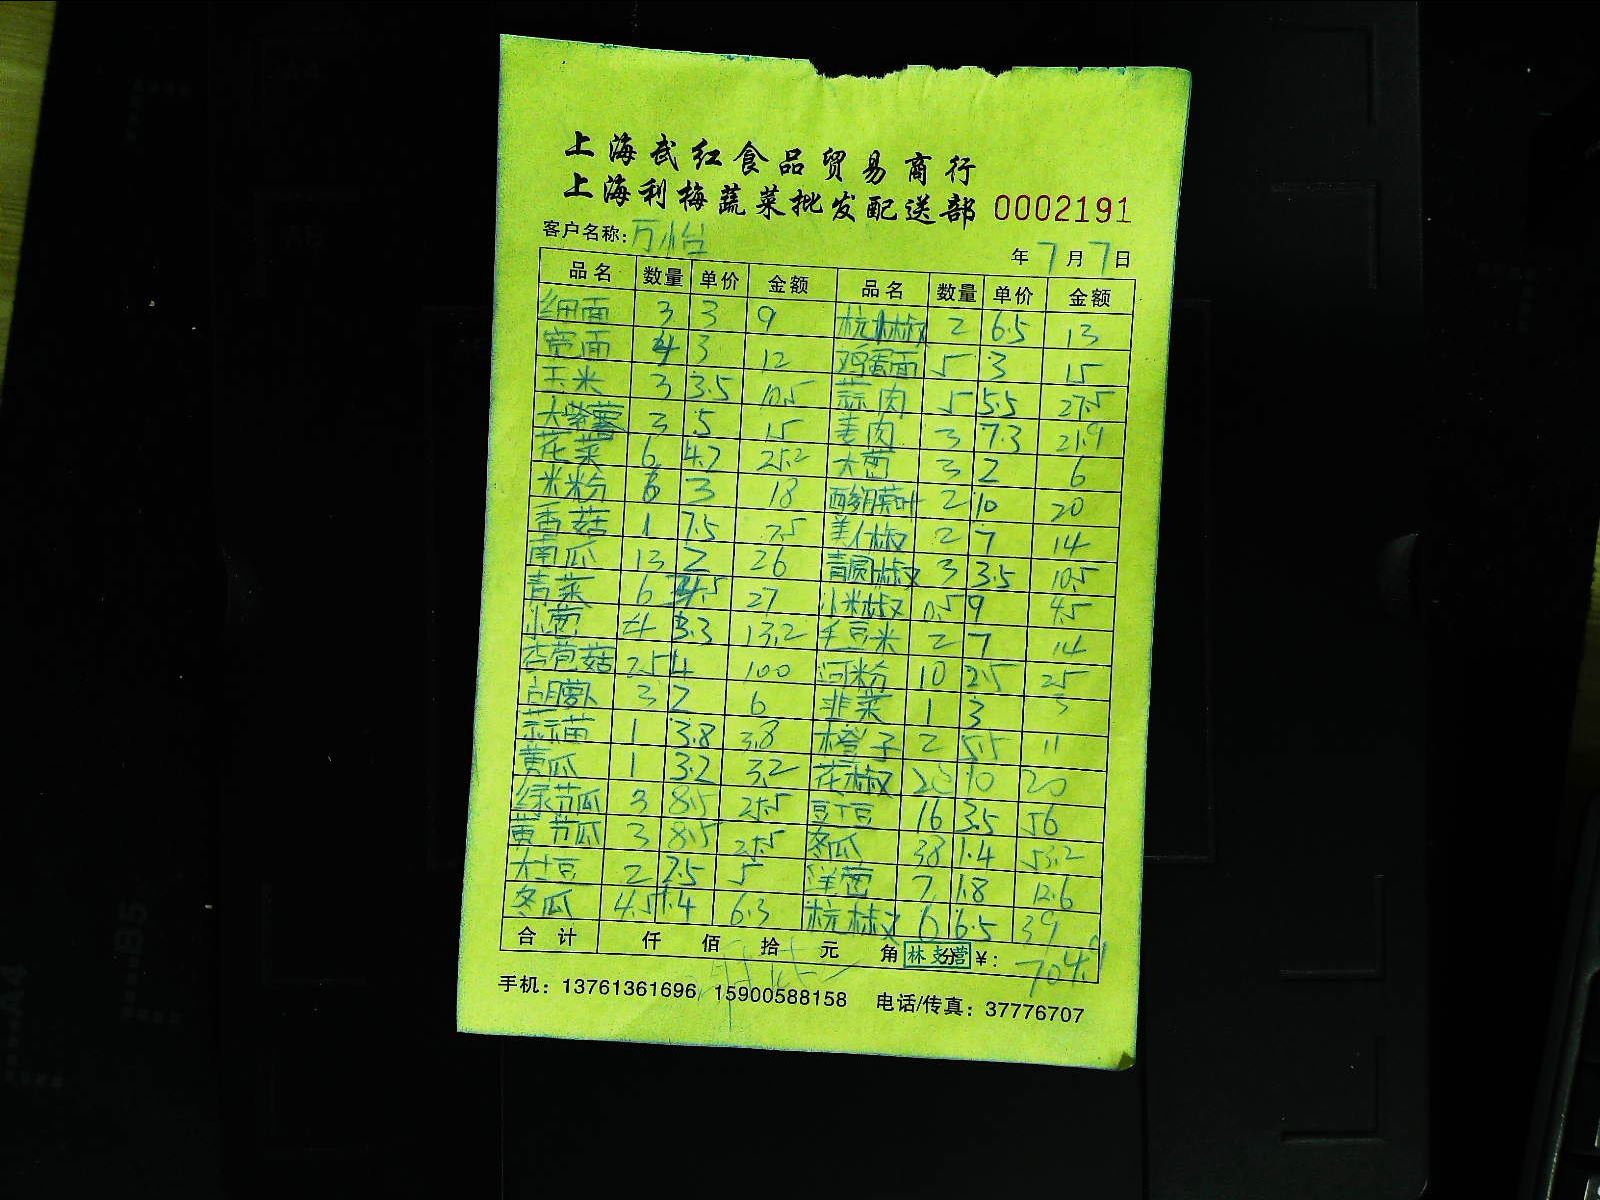 上海武红食品贸易商行
上海利梅蔬菜批发配送部 0002191
客户名称: 万怡 年 7 月 7 日
品名 数量 单价 金额 品名 数量 单价 金额
细面 3 3 9 杭椒 2 6.5 13
宽面 4 3 12 鸡蛋面 5 3 15
玉米 3 3.5 10.5 蒜肉 5 5.5 27.5
大紫薯 3 5 15 姜肉 3 7.3 21.9
花菜 6 4.2 25.2 大葱 3 2 6
米粉 6 3 18 2 10 20
香菇 1 7.5 7.5 美人椒 2 7 14
南瓜 13 2 26 青圆椒 3 3.5 10.5
青菜 6 4.5 27 小米椒 0.5 9 4.5
小葱 4 3.3 13.2 毛豆米 2 7 14
杏苞菇 25 4 100 河粉 10 2.5 25
胡萝卜 3 2 6 韭菜 1 3 3
蒜苗 1 3.8 3.8 橙子 2 5.5 11
黄瓜 1 3.2 3.2 花椒 2 10 20
绿节瓜 3 8.5 25.5 豆干豆 16 3.5 56
黄节瓜 3 8.5 25.5 冬瓜 38 1.4 53.2
豆 2 2.5 5 洋葱 7 1.8 12.6
冬瓜 4.5 1.4 6.3 杭椒 6 6.5 39
合计 仟 佰 拾 元 角 分 ¥: 704.9
手机: 13761361696 15900588158 电话/传真: 37776707